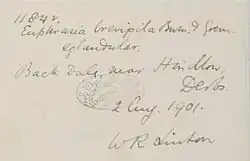 1184r.
Euphrasia brevipila Burn. & Grem.
eglandular.
Back Dale, near Hindlow
Derbs.
2 Aug. 1901.
W R Linton